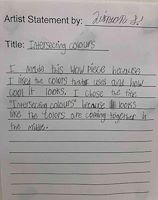 Artist Statement by:
Title: Intersecting colours
I made this how piece because
I liked the colors that used and how
cool it looks. I chose the title
"Intersecting colours" because it looks
like the colors are coming together in
the middle.